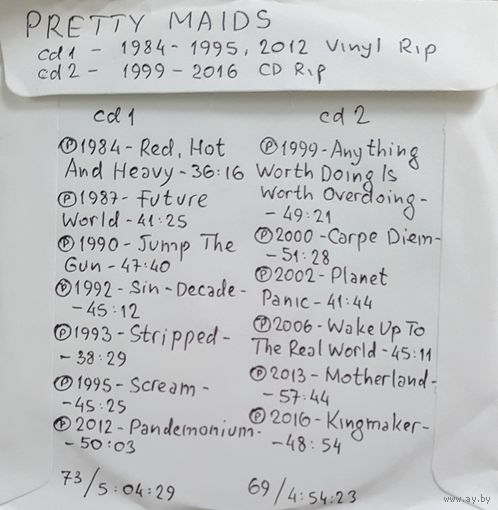 PRETTY MAIDS
cd1 - 1984-1995, 2012 Vinyl Rip
cd2 - 1999-2016 CD Rip
cd1
Ⓟ1984-Red, Hot
And Heavy-36:16
Ⓟ1987-Future
World-41:25
Ⓟ1990-Jump The
Gun-47:40
Ⓟ1992-Sin-Decade-
-45:12
Ⓟ1993-Stripped-
-38:29
Ⓟ1995-Scream-
-45:25
Ⓟ2012-Pandemonium-
-50:03
73/5:04:29
cd2
Ⓟ1999-Anything
Worth Doing Is
Worth Overdoing-
-49:21
Ⓟ2000-Carpe Diem-
-51:28
Ⓟ2002-Planet
Panic-41:44
Ⓟ2006-Wake Up To
The Real World-45:11
Ⓟ2013-Motherland-
-57:44
Ⓟ2016-Kingmaker-
-48:54
69/4:54:23
www.ay.by